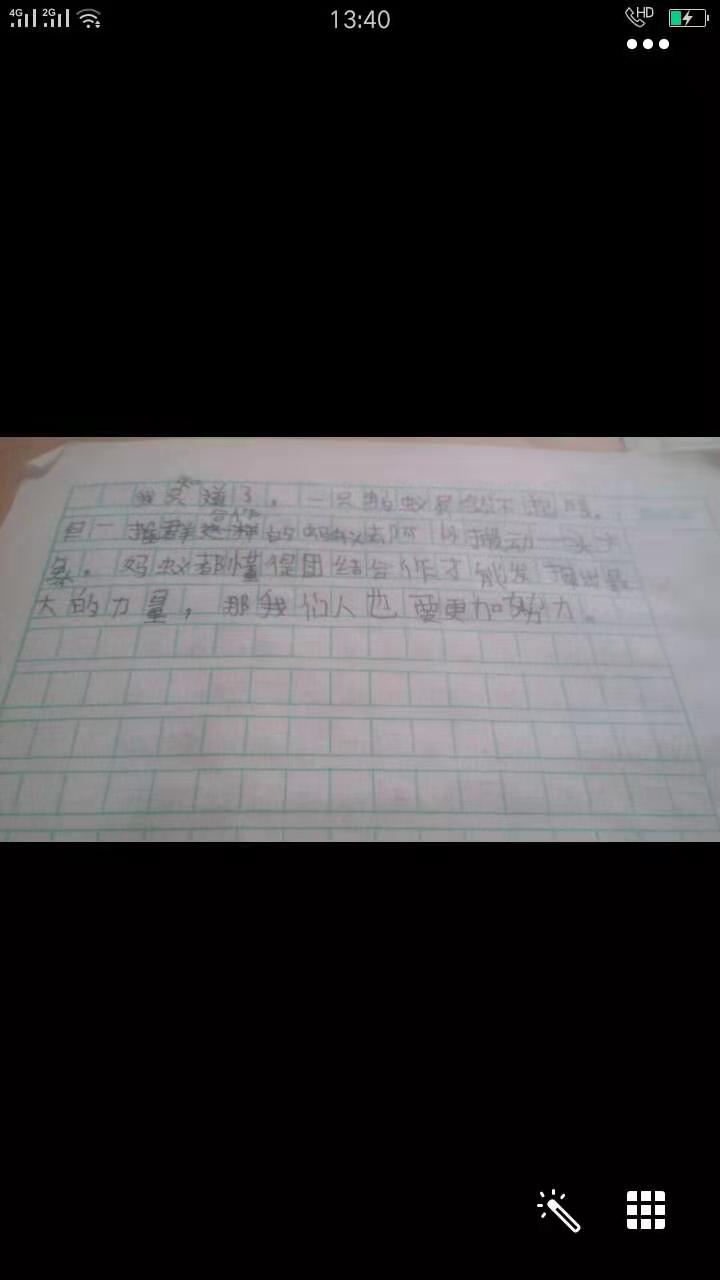 4G 2G 13:40 HD
我知道了。一只蚂蚁是 不起眼
但一群 的蚂蚁却可以搬动一头大
象。蚂蚁都懂得团结合作才能发挥出最
大的力量，那我们人也要更加努力。